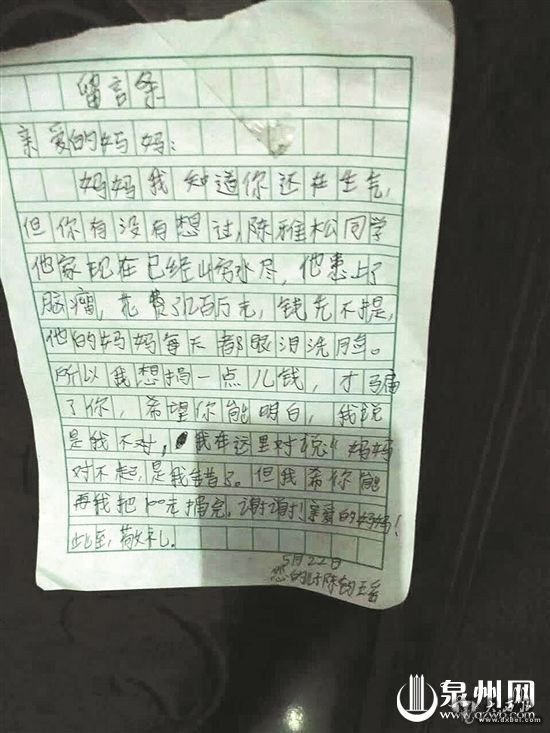 留言条
亲爱的妈妈：
妈妈我知道你还在生气，
但你有没有想过，陈雅松同学
他家现在已经山穷水尽，他患上了
脑瘤，花费了百万元，钱先不提，
他的妈妈每天都眼泪洗脸。
所以我想捐一点儿钱，才骗
了你，希望你能明白，我说
是我不对，我在这里对说《妈妈
对不起，是我错了。但我希你能
再我把100元捐完，谢谢！亲爱的妈妈！
此至，敬礼。
5月22日
您的 陈钧瑶
泉州网
www.qzwb.com
www.dxbei.com